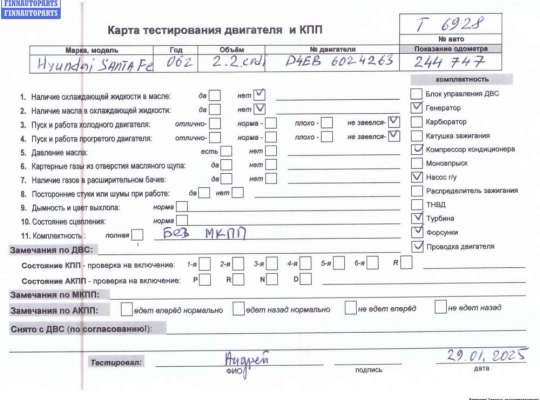 FINNAUTOPARTS
FINNAUTOPARTS
Карта тестирования двигателя и КПП
Т 6928
№ авто
Марка, модель Год Объём № двигателя Показание одометра
Hyundai SANTA Fe 06г 2.2 crdi D4EB 6024263 244 747
комплектность
1. Наличие охлаждающей жидкости в масле: да нет
2. Наличие масла в охлаждающей жидкости: да нет
3. Пуск и работа холодного двигателя: отлично- норма - плохо - не завелся-
4. Пуск и работа прогретого двигателя: отлично- норма - плохо - не завелся-
5. Давление масла: есть нет
6. Картерные газы из отверстия масляного щупа: да нет
7. Наличие газов в расширительном бачке: да нет
8. Посторонние стуки или шумы при работе: да нет
9. Дымность и цвет выхлопа: норма
10. Состояние сцепления: норма
11. Комплектность: полная Без МКПП
Блок управления ДВС
Генератор
Карбюратор
Катушка зажигания
Компрессор кондиционера
Моновпрыск
Насос г/у
Распределитель зажигания
ТНВД
Турбина
Форсунки
Проводка двигателя
Замечания по ДВС:
Состояние КПП - проверка на включение: 1-я 2-я 3-я 4-я 5-я 6-я R
Состояние АКПП - проверка на включение: P R N D
Замечания по МКПП:
Замечания по АКПП: едет вперёд нормально едет назад нормально не едет вперёд не едет назад
Снято с ДВС (по согласованию!):
Тестировал: Андрей 29.01.2025
ФИО подпись дата